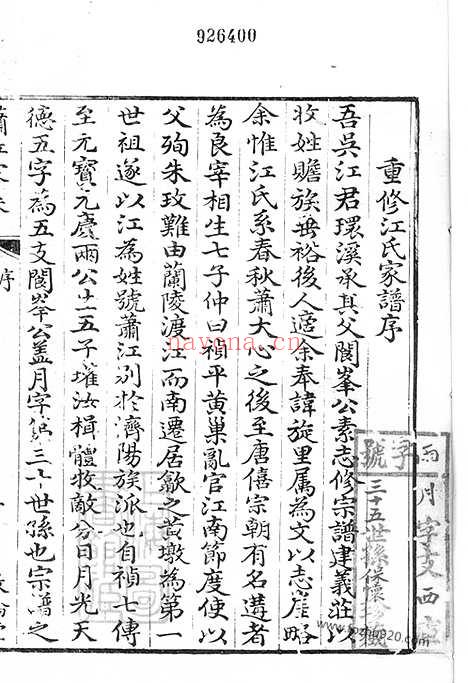 926400
重修江氏家譜序
吾吳江君環溪承其父閬峯公素志修宗譜建義莊以
收姓贍族垂裕後人適余奉諱旋里属為文以志崖略
余惟江氏系春秋蕭大心之後至唐僖宗朝有名遘者
為良宰相生七子仲曰禎平黃巢亂官江南節度使以
父殉朱玫難由蘭陵渡江而南遷居歙之黃墩為第一
世祖遂以江為姓號蕭江別於濟陽族派也自禎七傳
至元寶元慶兩公生五子璀汝楫體牧敵分日月光天
德五字為五支閬峯公蓋月字第三十世孫也宗譜之
序
字號
月字支西
三十五世孫保懷珍藏
nayona.cn
www.fozhu920.com